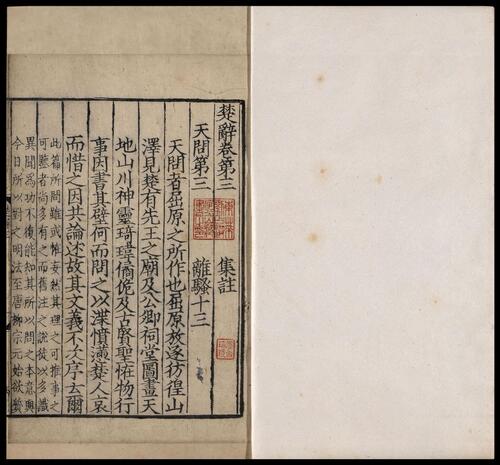 楚辭卷第三 集註
天問第三 離騷十三
天問者屈原之所作也屈原放逐彷徨山
澤見楚有先王之廟及公卿祠堂圖畫天
地山川神靈琦瑋僪佹及古賢聖怪物行
事因書其壁何而問之以渫憤懣楚人哀
而惜之因共論述故其文義不次序云爾
此篇所問雖或怪妄然其理之可推事之
可鑒者尚多有之而舊注之說徒以多識
異聞為功不復能知其所以問之本意與
今日所以對之明法至唐柳宗元始欲質